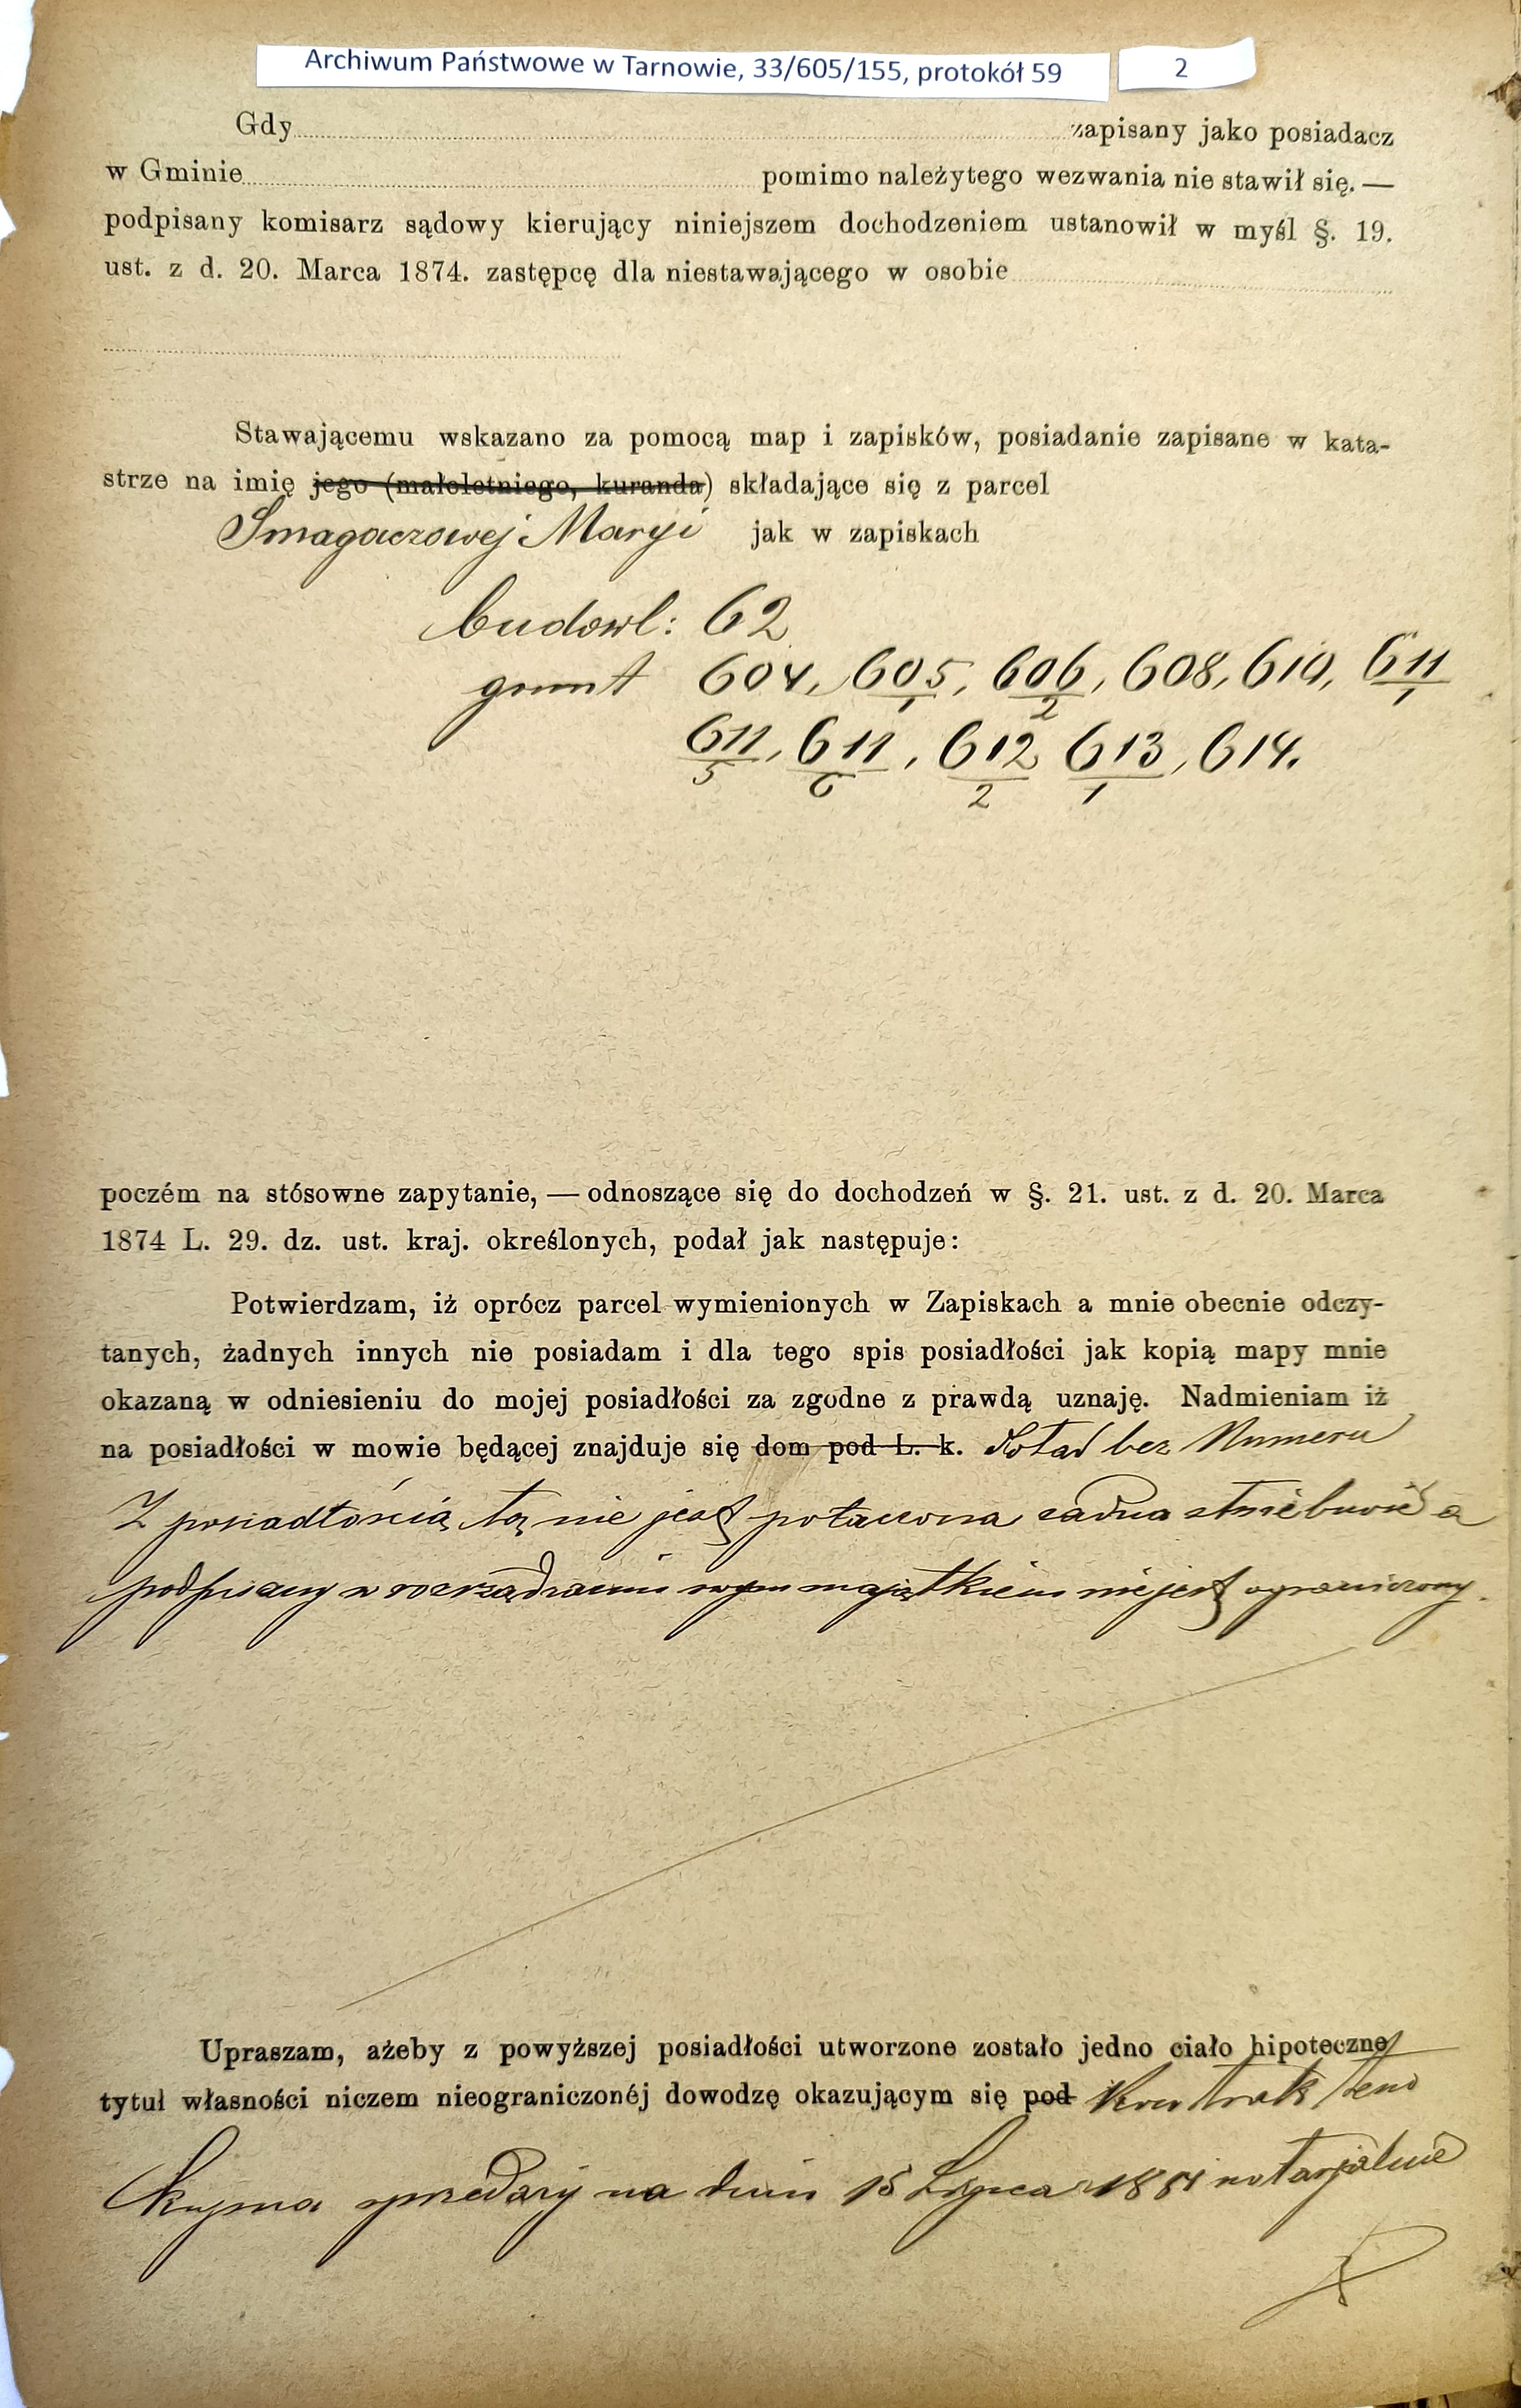 Archiwum Państwowe w Tarnowie, 33/605/155, protokół 59 2
Gdy zapisany jako posiadacz
w Gminie pomimo należytego wezwania nie stawił się. —
podpisany komisarz sądowy kierujący niniejszem dochodzeniem ustanowił w myśl §. 19.
ust. z d. 20. Marca 1874. zastępcę dla niestawającego w osobie
Stawającemu wskazano za pomocą map i zapisków, posiadanie zapisane w kata-
strze na imię jego (małoletniego, kuranda) składające się z parcel
Smagaczowej Maryi jak w zapiskach
budowl: 62
grunt 604, 605/1, 606/2, 608, 610, 611/1
611/5, 611/6, 612/2 613/1, 614.
poczém na stósowne zapytanie, — odnoszące się do dochodzeń w §. 21. ust. z d. 20. Marca
1874 L. 29. dz. ust. kraj. określonych, podał jak następuje:
Potwierdzam, iż oprócz parcel wymienionych w Zapiskach a mnie obecnie odczy-
tanych, żadnych innych nie posiadam i dla tego spis posiadłości jak kopią mapy mnie
okazaną w odniesieniu do mojej posiadłości za zgodne z prawdą uznaję. Nadmieniam iż
na posiadłości w mowie będącej znajduje się dom pod L. k. bez Numeru
Z posiadłością tą nie jest połączona żadna służebność a
podpisany w rozrządzaniu swym majątkiem nie jest ograniczony.
Upraszam, ażeby z powyższej posiadłości utworzone zostało jedno ciało hipoteczne
tytuł własności niczem nieograniczonéj dowodzę okazującym się pod Kontraktem
Kupna sprzedaży na dniu 15 Lipca 1881 notarjalnie